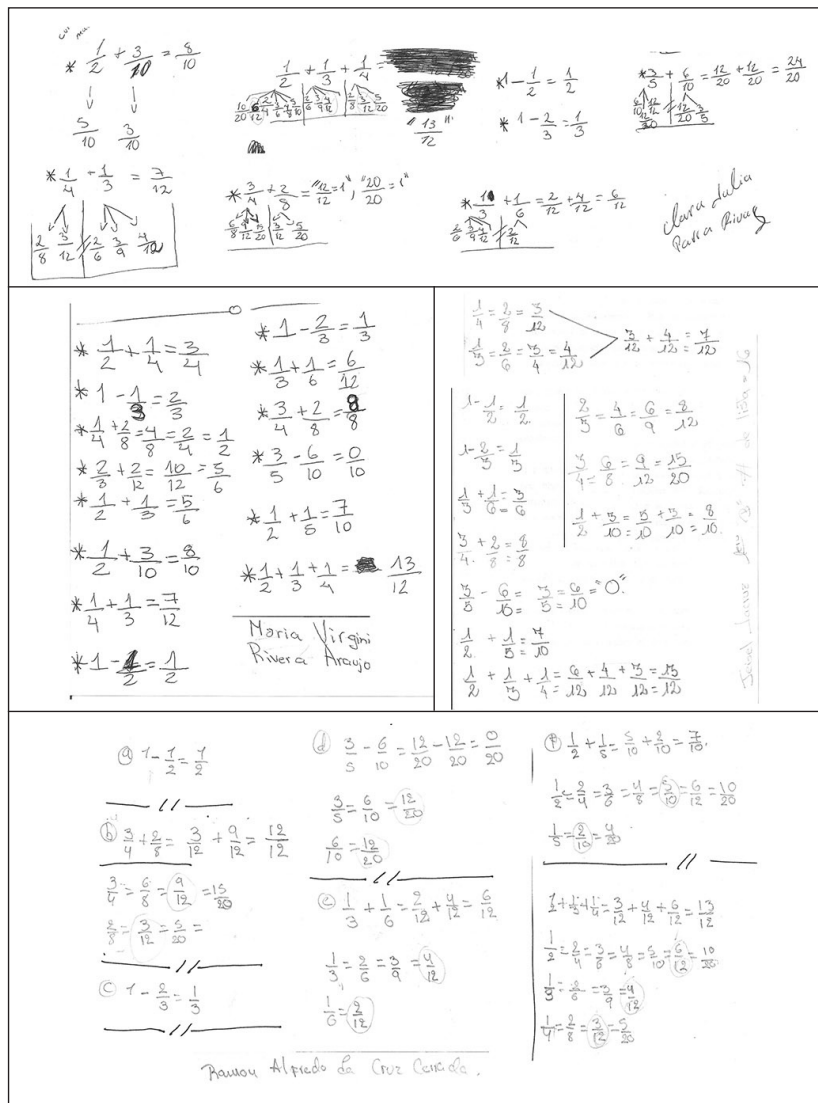 * 1/2 + 3/10 = 8/10
↓ ↓
5/10 3/10
* 1/4 + 1/3 = 7/12
2/8 3/12 // 2/6 3/9 4/12
1/2 + 1/3 + 1/4 =
"13/12"
* 3/4 + 2/8 = "12/12 = 1", "20/20 = 1"
6/8 9/12 15/20 // 3/12 5/20
* 1 - 1/2 = 1/2
* 1 - 2/3 = 1/3
* 3/5 + 6/10 = 12/20 + 12/20 = 24/20
* 1/3 + 1/6 = 2/12 + 4/12 = 6/12
2/6 3/9 4/12 // 2/12
Clara Julia
Parra Rivas
* 1/2 + 1/4 = 3/4
* 1 - 1/3 = 2/3
* 1/4 + 2/8 = 4/8 = 2/4 = 1/2
* 2/3 + 2/12 = 10/12 = 5/6
* 1/2 + 1/3 = 5/6
* 1/2 + 3/10 = 8/10
* 1/4 + 1/3 = 7/12
* 1 - 1/2 = 1/2
* 1 - 2/3 = 1/3
* 1/3 + 1/6 = 6/12
* 3/4 + 2/8 = 8/8
* 3/5 - 6/10 = 0/10
* 1/2 + 1/5 = 7/10
* 1/2 + 1/3 + 1/4 = 13/12
Maria Virgini
Rivera Araujo
1/4 = 2/8 = 3/12
1/3 = 2/6 = 3/4 = 4/12
3/12 + 4/12 = 7/12
1 - 1/2 = 1/2
1 - 2/3 = 1/3
1/3 + 1/6 = 3/6
3/4 + 2/8 = 8/8
3/5 - 6/10 = 3/5 = 6/10 = "0"
1/2 + 1/5 = 7/10
1/2 + 1/3 + 1/4 = 6/12 + 4/12 + 3/12 = 13/12
2/3 = 4/6 = 6/9 = 8/12
3/4 = 6/8 = 9/12 = 15/20
1/2 + 3/10 = 5/10 + 3/10 = 8/10
a 1 - 1/2 = 1/2
//
b 3/4 + 2/8 = 3/12 + 9/12 = 12/12
3/4 = 6/8 = 9/12 = 15/20
2/8 = 3/12 = 5/20 =
//
c 1 - 2/3 = 1/3
//
d 3/5 - 6/10 = 12/20 - 12/20 = 0/20
3/5 = 6/10 = 12/20
6/10 = 12/20
//
e 1/3 + 1/6 = 2/12 + 4/12 = 6/12
1/3 = 2/6 = 3/9 = 4/12
1/6 = 2/12
f 1/2 + 1/5 = 5/10 + 2/10 = 7/10.
1/2 = 2/4 = 3/6 = 4/8 = 5/10 = 6/12 = 10/20
1/5 = 2/10 = 4/20
//
1/2 + 1/3 + 1/4 = 3/12 + 4/12 + 6/12 = 13/12
1/2 = 2/4 = 3/6 = 4/8 = 5/10 = 6/12 = 10/20
1/3 = 2/6 = 3/9 = 4/12
1/4 = 2/8 = 3/12 = 5/20
Ramon Alfredo de La Cruz